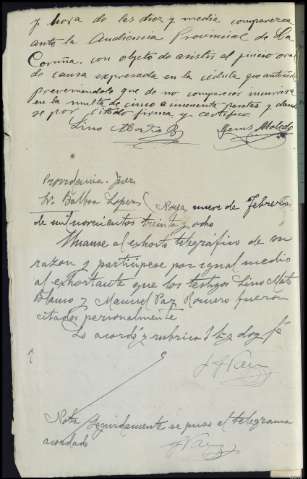 y hora de las diez y media comparezca
ante la Audiencia Provincial de La
Coruña, con objeto de asistir al juicio oral
de causa expresada en la cédula que antecede
previniendole que de no comparecer incurrira
en la multa de cinco a cincuenta pesetas y dandose
por citado firma y certifico.
Lino Mato B.
Providencia Juez
Sr. Balboa Lopez Noya nueve de Febrero
de mil novecientos treinta y ocho
Unanse al exhorto telegrafico de su
razon y participese por igual medio
al exhortante que los testigos Lino Mato
Blanco y Manuel Paz Romero fueron
citados personalmente
Lo acordó y rubrica S Sª doy fé
Nota Seguidamente se puso el telegrama
acordado